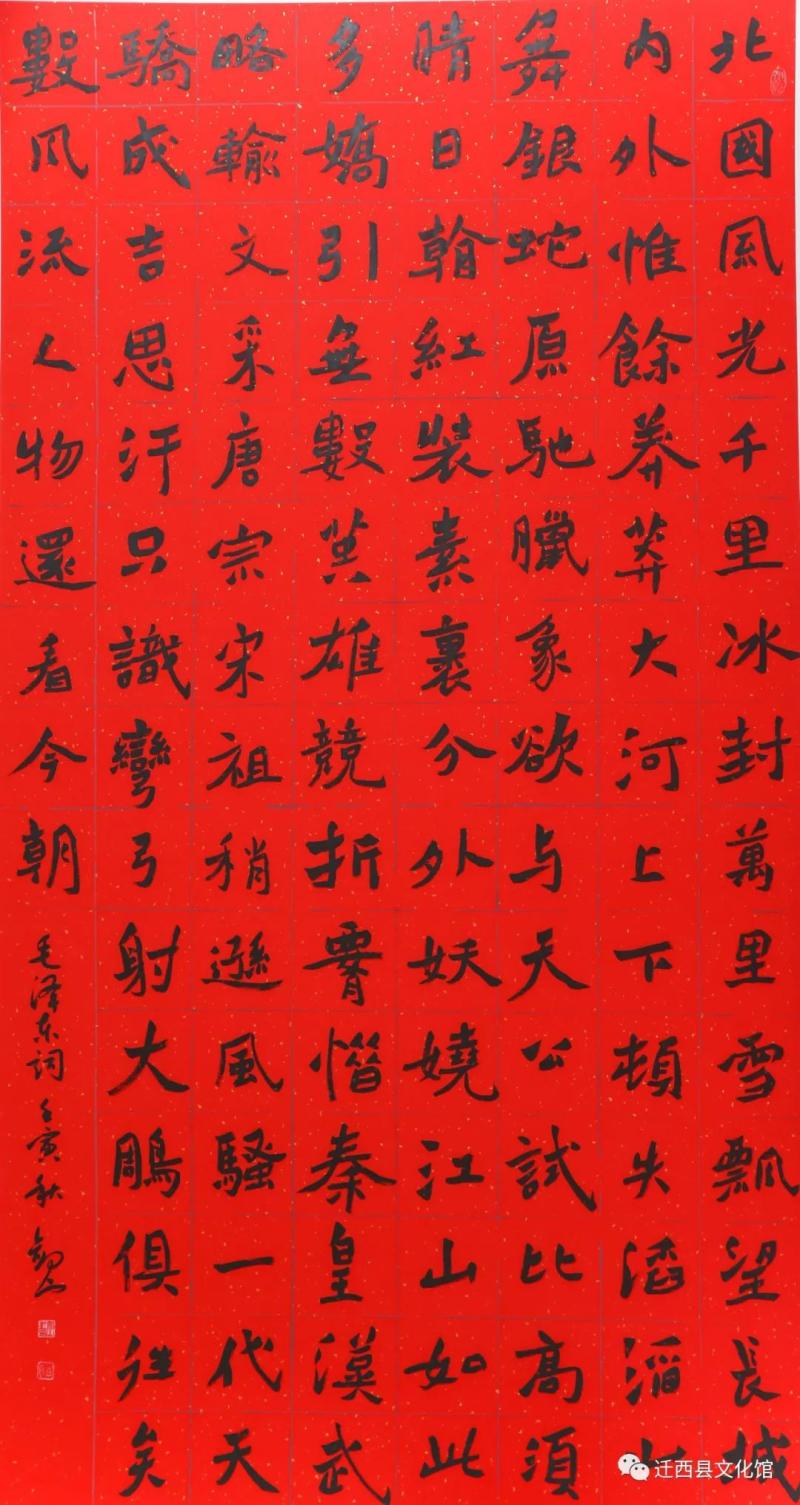 北國風光千里冰封萬里雪飄望長城
内外惟餘莽莽大河上下頓失滔滔山
舞銀蛇原馳臘象欲与天公試比高須
晴日看紅裝素裹分外妖嬈江山如此
多嬌引無數英雄競折腰惜秦皇漢武
略輸文采唐宗宋祖稍遜風騷一代天
驕成吉思汗只識彎弓射大鵰俱往矣
數風流人物還看今朝
毛泽东词壬寅秋
迁西县文化馆